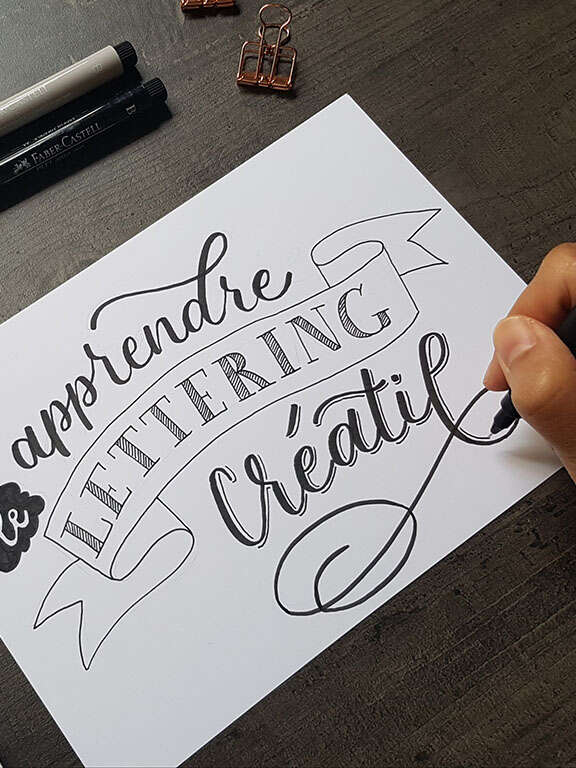 FABER CASTELL
apprendre
le LETTERING
créatif